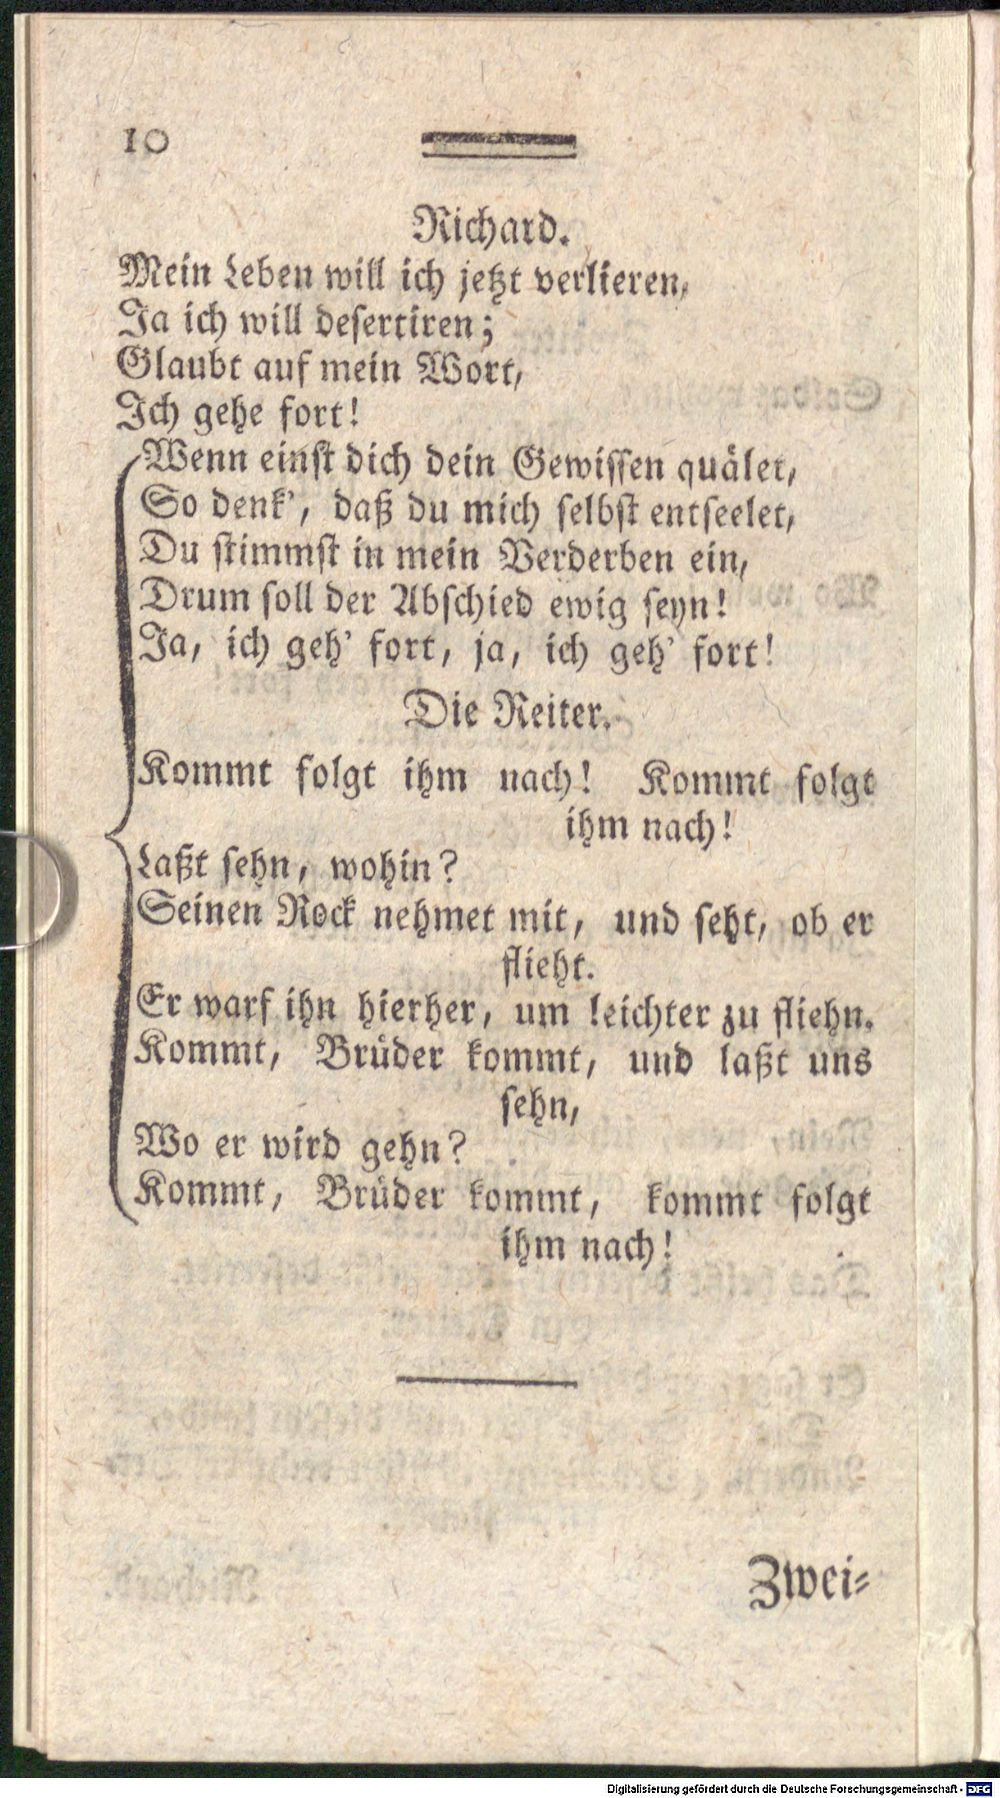 10
Richard.
Mein Leben will ich jetzt verlieren,
Ja ich will desertiren;
Glaubt auf mein Wort,
Ich gehe fort!
Wenn einst dich dein Gewissen quälet,
So denk', daß du mich selbst entseelet,
Du stimmst in mein Verderben ein,
Drum soll der Abschied ewig seyn!
Ja, ich geh' fort, ja, ich geh' fort!
Die Reiter.
Kommt folgt ihm nach! Kommt folgt
ihm nach!
Laßt sehn, wohin?
Seinen Rock nehmet mit, und seht, ob er
flieht.
Er warf ihn hierher, um leichter zu fliehn.
Kommt, Brüder kommt, und laßt uns
sehn,
Wo er wird gehn?
Kommt, Brüder kommt, kommt folgt
ihm nach!
Zwei-
Digitalisierung gefördert durch die Deutsche Forschungsgemeinschaft - DFG